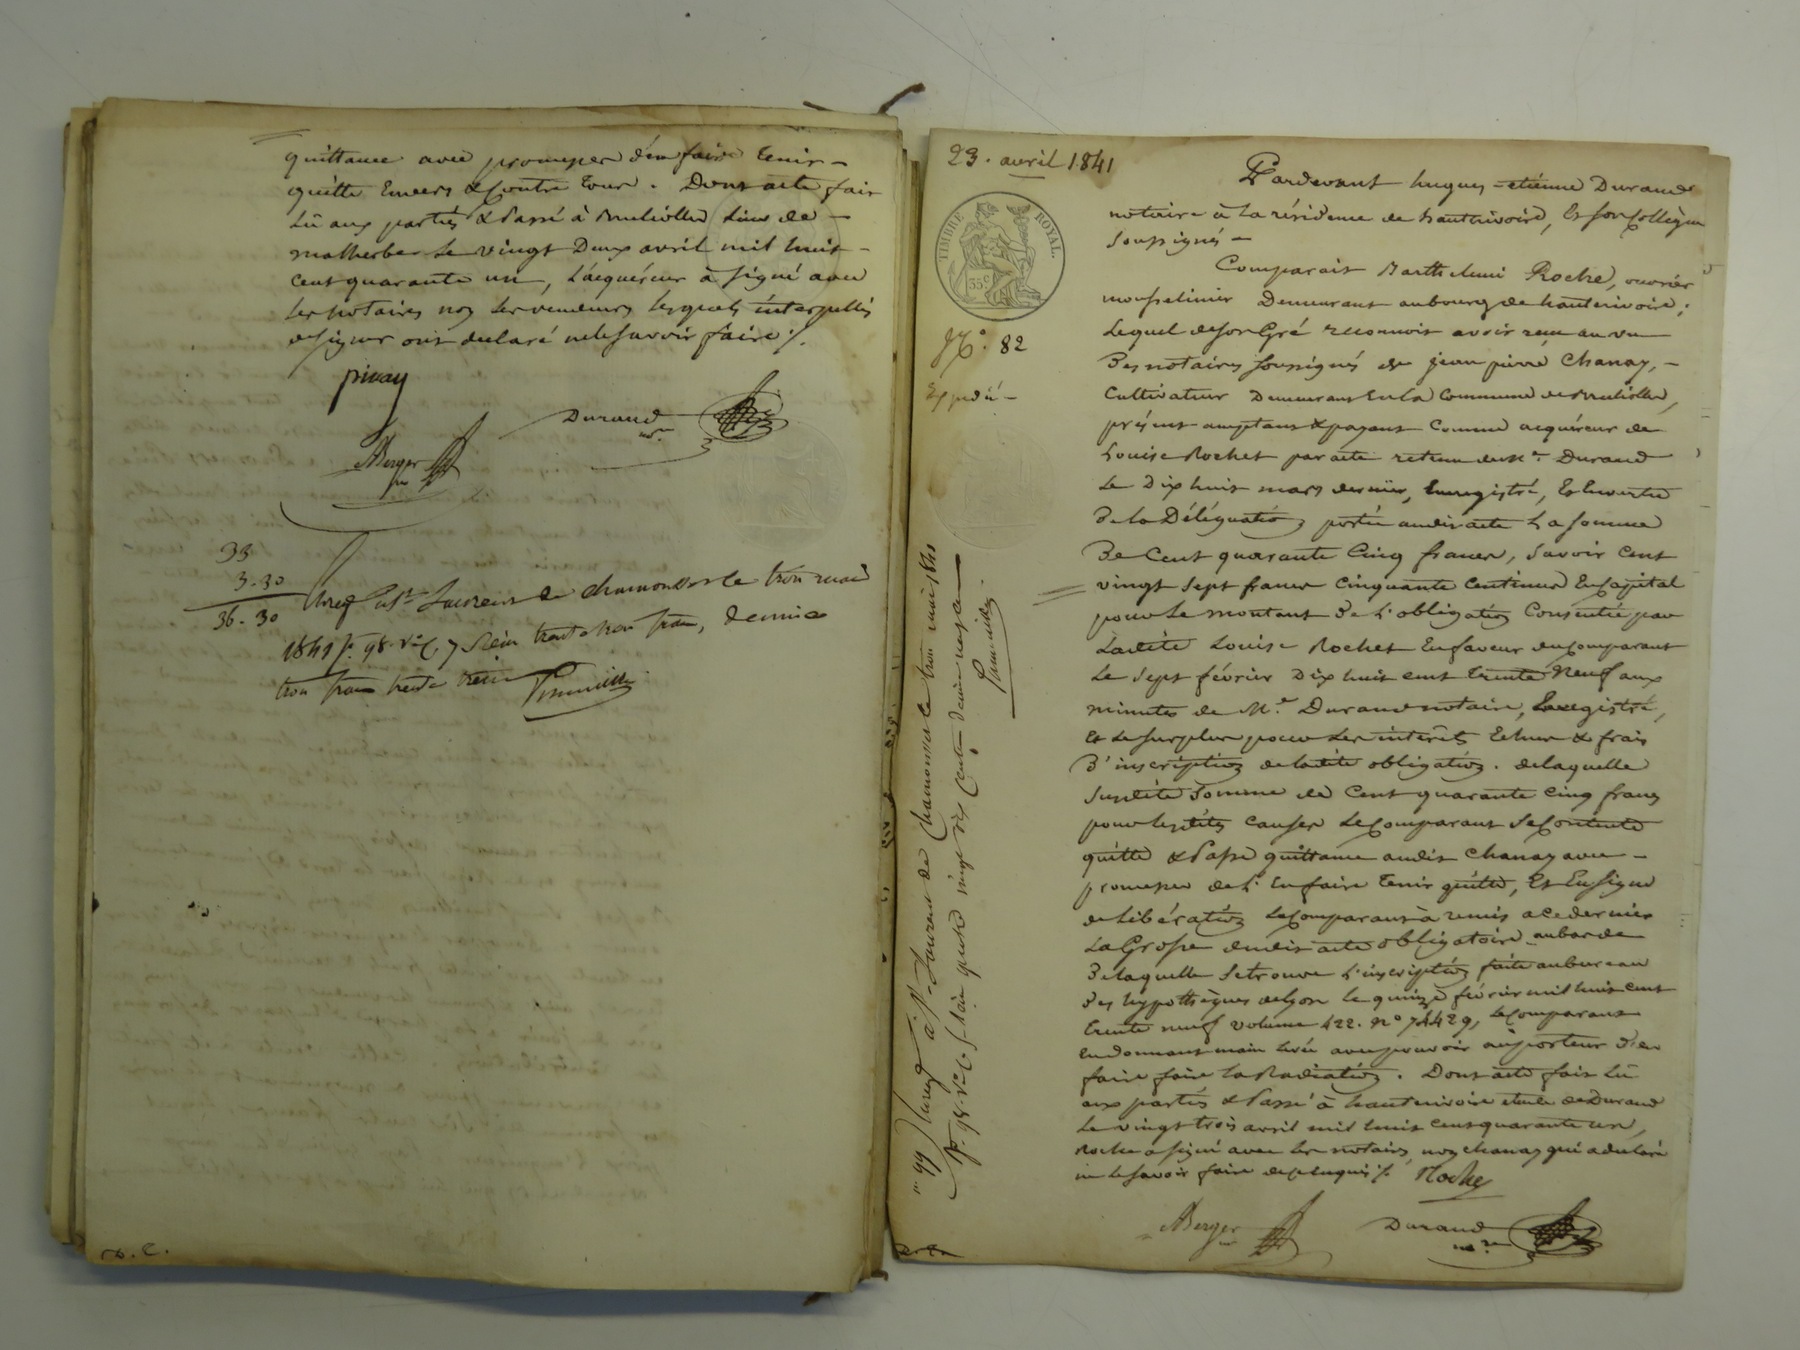 quittance avec promesse d'en faire tenir -
quitte envers & contre tous. Dont acte fait
Lu aux parties & Passé à Brullioles Lieu de -
malherbe Le vingt Deux avril mil huit -
cent quarante un, L'acquéreur à signé avec
les notaires non les vendeurs lesquels interpellés
de signer ont declaré ne le savoir faire /.
pivay
Durand nre
ABerger nre
33
3.30
36.30
Enreg. à St Laurent de chamousset le trois mai
1841 fo 98 vo c. 7 Reçu trente trois francs, décime
trois francs trente
rd. C.
23. avril 1841
Pardevant hugues-etiénne Durand
notaire à la résidence de hauterivoire, et son collègue
soussignés -
TIMBRE ROYAL.
35c
No. 82
Expédié -
Comparait Barthelemi Roche, ouvrier
mousselinier Demeurant au bourg de hauterivoire ;
Lequel de son Gré reconnoit avoir reçu au vu
Des notaires soussignés de jean pierre Chanay, -
Cultivateur Demeurant en la Commune de Brullioles,
présent acceptant & payant Comme acquéreur de
Louise Rochet par acte retenu du Me. Durand
Le Dix huit mars dernier, Enregistré, Et Envertu
De la Délégation portée audit acte La somme
De Cent quarante Cinq francs, Savoir cent
vingt sept francs cinquante centimes En capital
pour Le montant De L'obligation Consentie par
Ladite Louise Rochet En faveur du Comparant
Le sept février Dix huit cent trente Neuf aux
minutes de Me. Durand notaire, Enregistré,
Et Le surplus pour Les intérêts Echus & frais
D'inscription de ladite obligation. de laquelle
Susdite somme de Cent quarante cinq francs
pour lesdites causes Le Comparant Se Contente
quitte & Passe quittance audit Chanay avec -
promesse de L'En faire tenir quitte, Et En Signe
de Libération Le Comparant à remis a ce dernier
La Grosse dudit acte obligatoire au bas de
De laquelle se trouve L'inscription faite au bureau
des hypothèques de Lyon le quinze février mil huit cent
trente neuf volume 422. No 74429, Le Comparant
En donnant main levée avec pouvoir au porteur d'en
faire faire la Radiation. Dont acte fait Lu
aux parties & Passé à hauterivoire etude de Durand
Le vingt trois avril mil huit cent quarante un,
Roche a signé avec les notaires, non chanay qui a declaré
ne le savoir faire de ce enquis /. Roche
ABerger nre
Durand nre
no 99 Enreg. à St. Laurent de Chamousset le trois mai 1841
fo. 98 vo c. 7 Reçu quatre vingt dix centimes, décime neuf c.